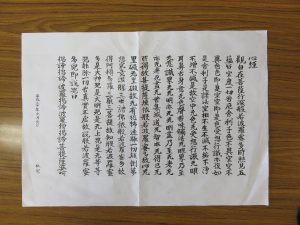 心経
觀自在菩薩行深般若波羅蜜多時照見五
蘊皆空度一切苦厄舎利子色不異空空不
異色色即是空空即是色受想行識亦復如
是舎利子是諸法空相不生不滅不垢不浄
不増不減是故空中无色无受想行識无眼
耳鼻舌身意无色聲香味觸法无眼界乃至
无意識界无无明亦无无明盡乃至无老死
亦无老死盡无苦集滅道无智亦无得以无
所得故菩提薩埵依般若波羅蜜多故心无
罣礙无罣礙故无有恐怖遠離一切顛倒夢
想究竟涅槃三世諸佛依般若波羅蜜多故
得阿耨多羅三藐三菩提故知般若波羅蜜
多是大神呪是大明呪是无上呪是无等等
呪能除一切苦真實不虚故説般若波羅蜜
多呪即説呪曰
揭諦揭諦波羅揭諦波羅僧揭諦菩提薩婆訶